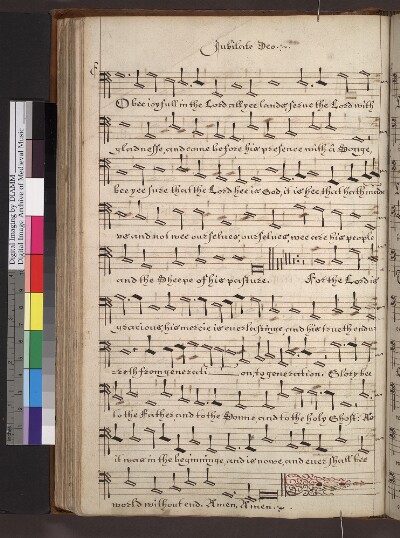 Jubilate Deo.
O bee ioyfull in the Lord all yee lands, serue the Lord with
gladnesse, and come before his presence with a Songe,
bee yee sure that the Lord hee is God, it is hee that hath made
vs and not wee ourselues, ourselues, wee are his people
and the Sheepe of his pasture. For the Lord is
gracious, his mercie is euerlastinge, and his trueth endu
reth from generati on, to generation. Glory bee
to the Father and to the Sonne, and to the holy Ghost: As
it was in the beginninge, and is nowe, and euer shall bee
world without end. Amen, Amen.
Digital Imaging by DIAMM
Digital Image Archive of Medieval Music